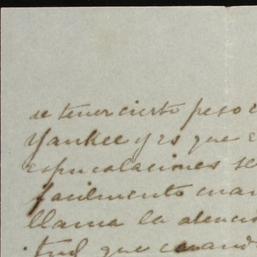 se tener cierto peso e
Yankee y es que e
espuculaciones se
facilmente cuan
llama la atencio
tud que cuand